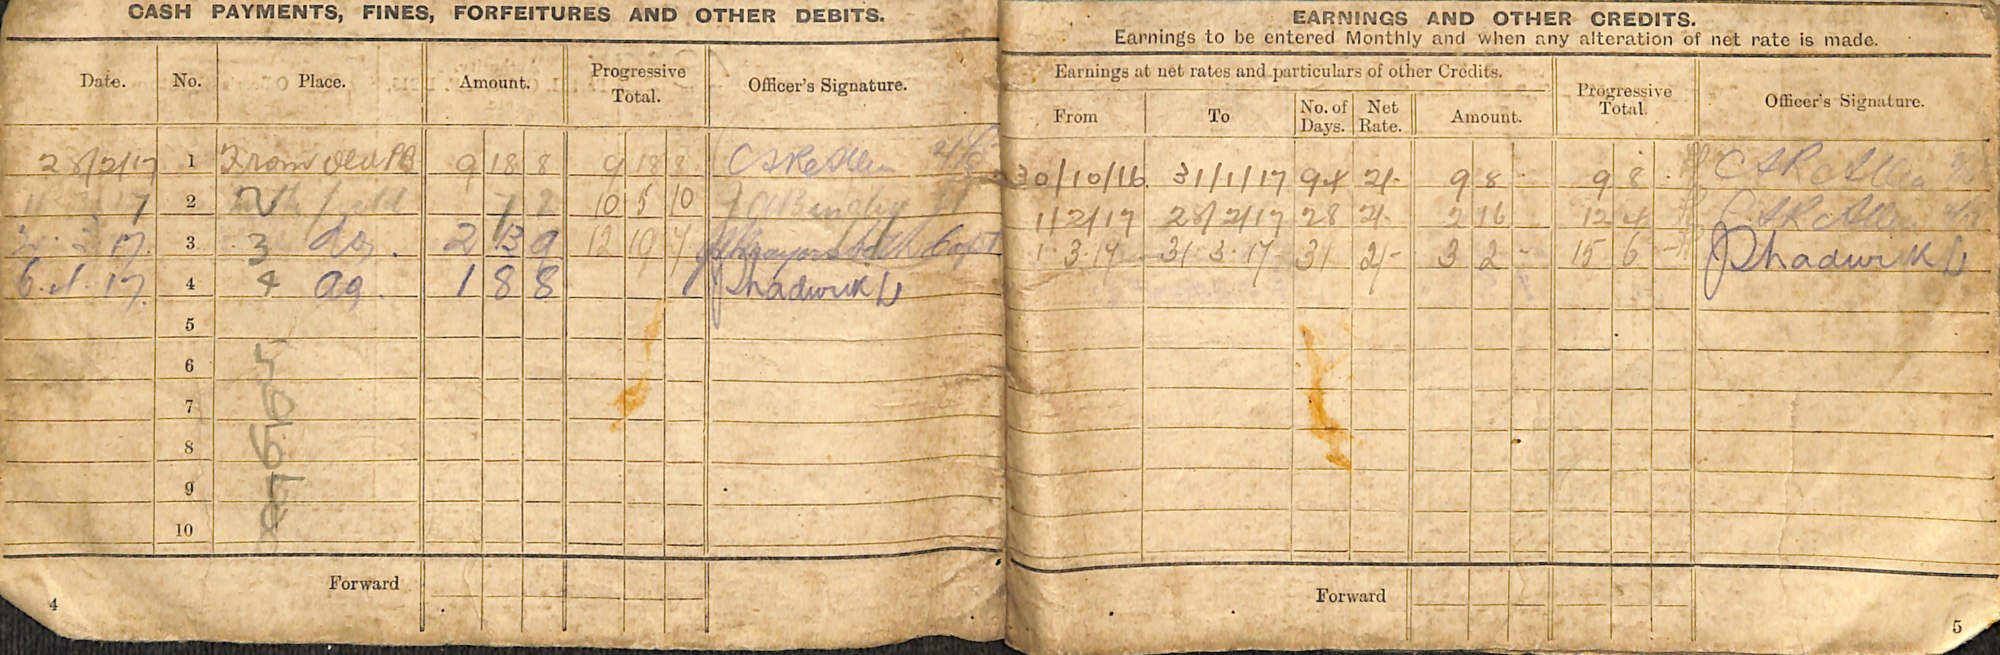 CASH PAYMENTS, FINES, FORFEITURES AND OTHER DEBITS.
Date. No. Place. Amount. Progressive Total. Officer's Signature.
28/2/17 1 From old PB 9 18 8 9 18 8
2 2 7 2 10 5 10
17. 3 3 do. 2 13 9 12 19 7 Capt
17. 4 4 1 8 8 Shadwick Lt
5 5
6 6
7 7
8 8
9
10
Forward
4
EARNINGS AND OTHER CREDITS.
Earnings to be entered Monthly and when any alteration of net rate is made.
Earnings at net rates and particulars of other Credits.
From To No. of Days. Net Rate. Amount. Progressive Total. Officer's Signature.
30/10/16. 31/1/17 94 2/- 9 8 - 9 8 -
1/2/17 28/2/17 28 2/- 2 16 12 4
1.3.17 31.3.17 31 2/- 3 2 - 15 6 - Shadwick Lt
Forward
5